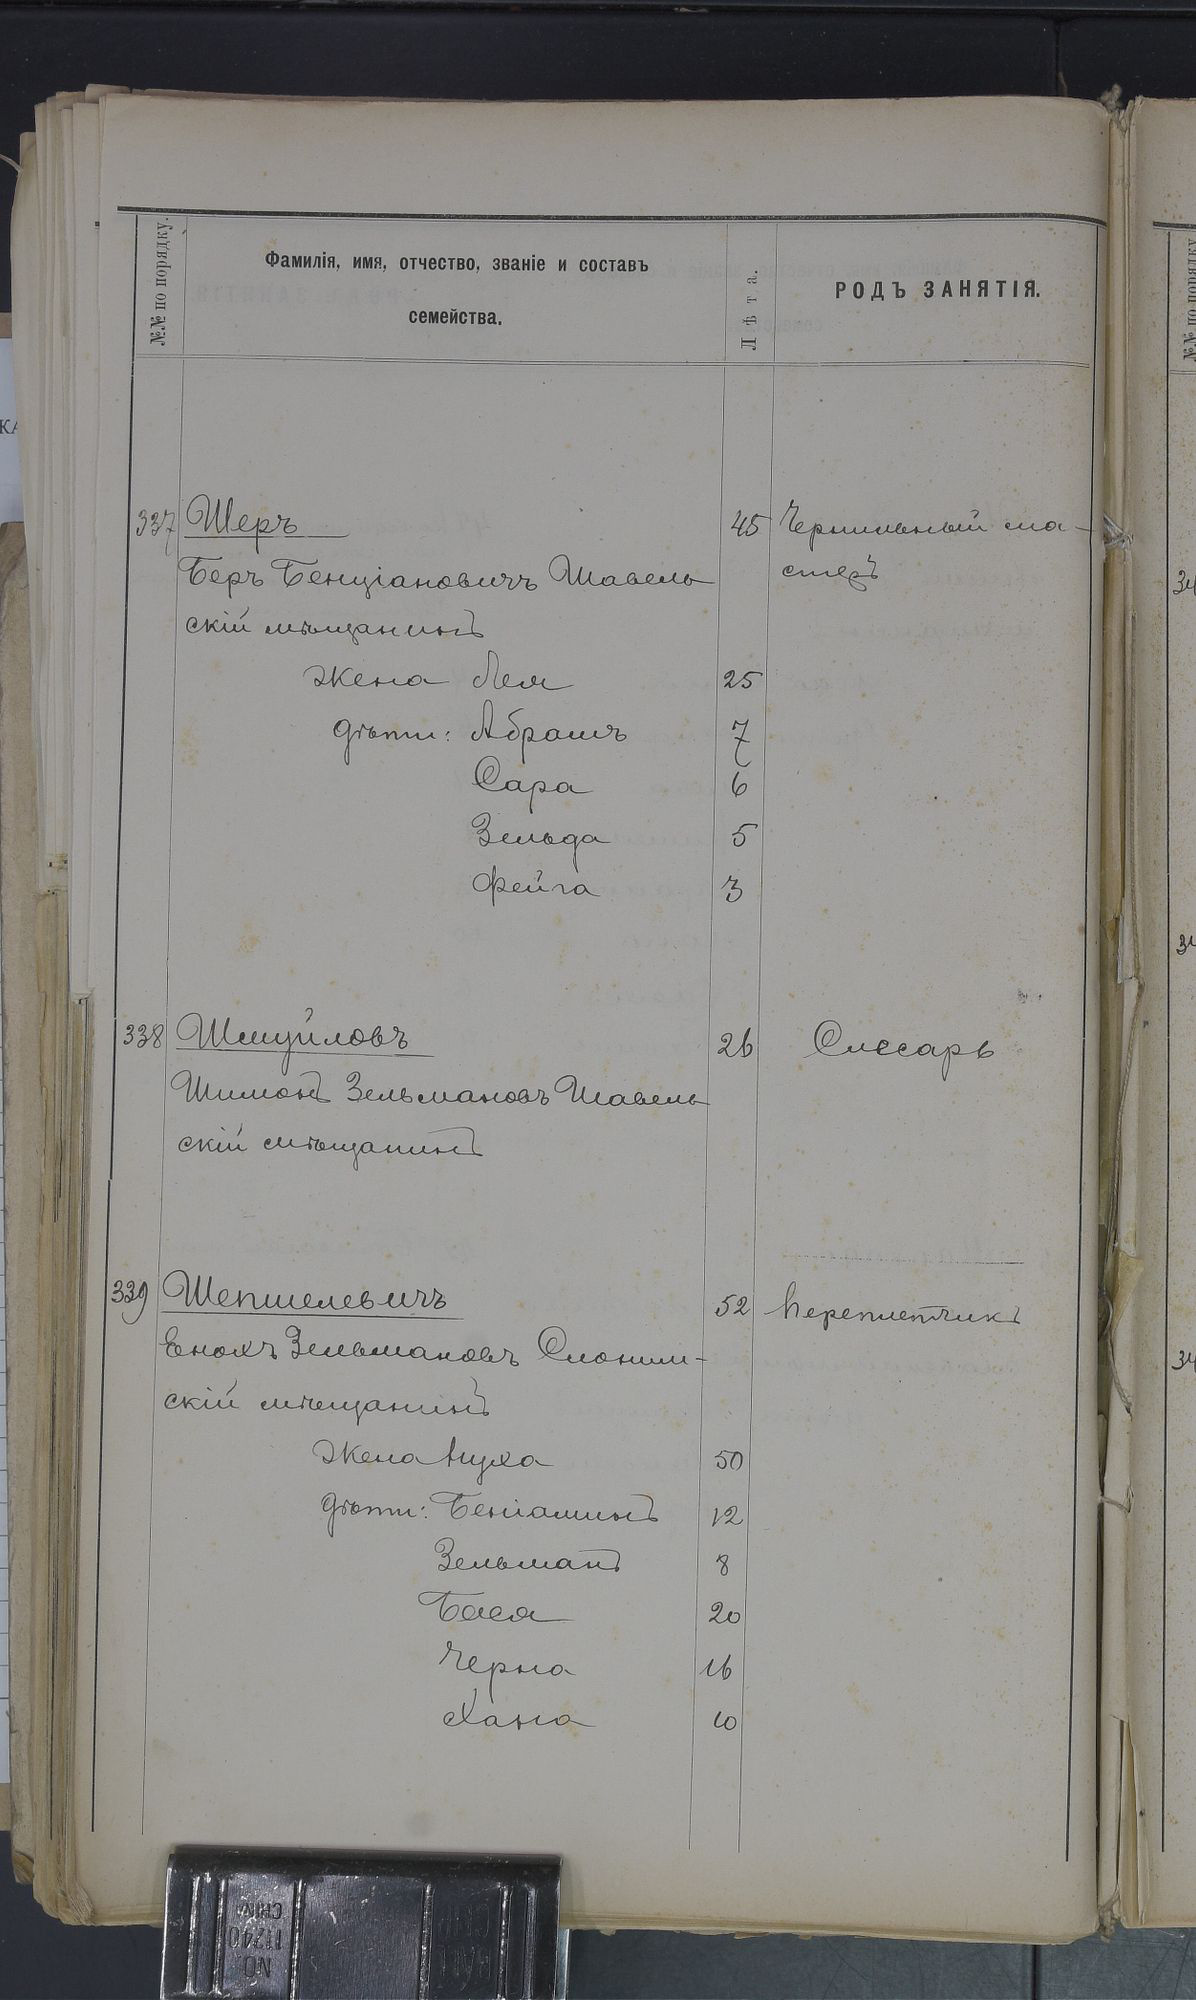 №№ по порядку.
Фамилія, имя, отчество, званіе и составъ
семейства.
Лѣта.
РОДЪ ЗАНЯТІЯ.
337 Шеръ 45 Чернильный ма-
Беръ Бенціановичъ Шавель стеръ
скій мѣщанинъ
жена Лея 25
дѣти: Абрамъ 7
Сара 6
Зельда 5
Фейга 3
338 Шмуйловъ 26 Слесарь
Шимонъ Зельмановъ Шавель
скій мѣщанинъ
339 Шепшелевичъ 52 Переплетчикъ
Енохъ Зельмановъ Слоним-
скій мѣщанинъ
жена 50
дѣти: Беніаминъ 12
Зельманъ 8
Бася 20
Черна 16
Хана 10
№№ по порядку
34
34
34
КА
NO.
11240
CHIN